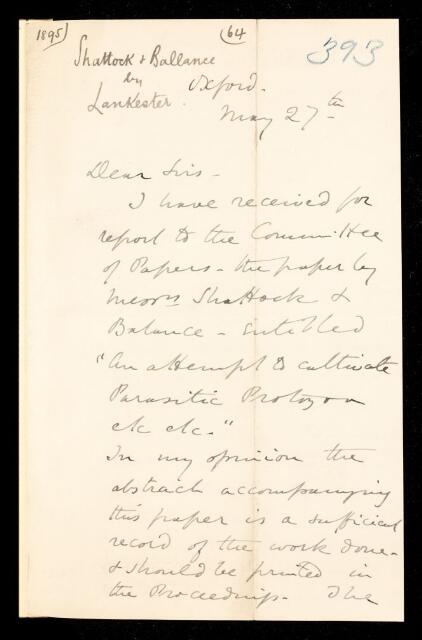 1895)
(64
393
Shattock & Ballance
by
Lankester.
Oxford.
May 27th
Dear Sirs -
I have received for
report to the Committee
of Papers - the paper by
Messrs Shattock &
Balance - entitled
"An attempt to cultivate
Parasitic Protozoa
etc etc."
In my opinion the
abstract accompanying
this paper is a sufficient
record of the work done -
& should be printed in
the Proceedings. The